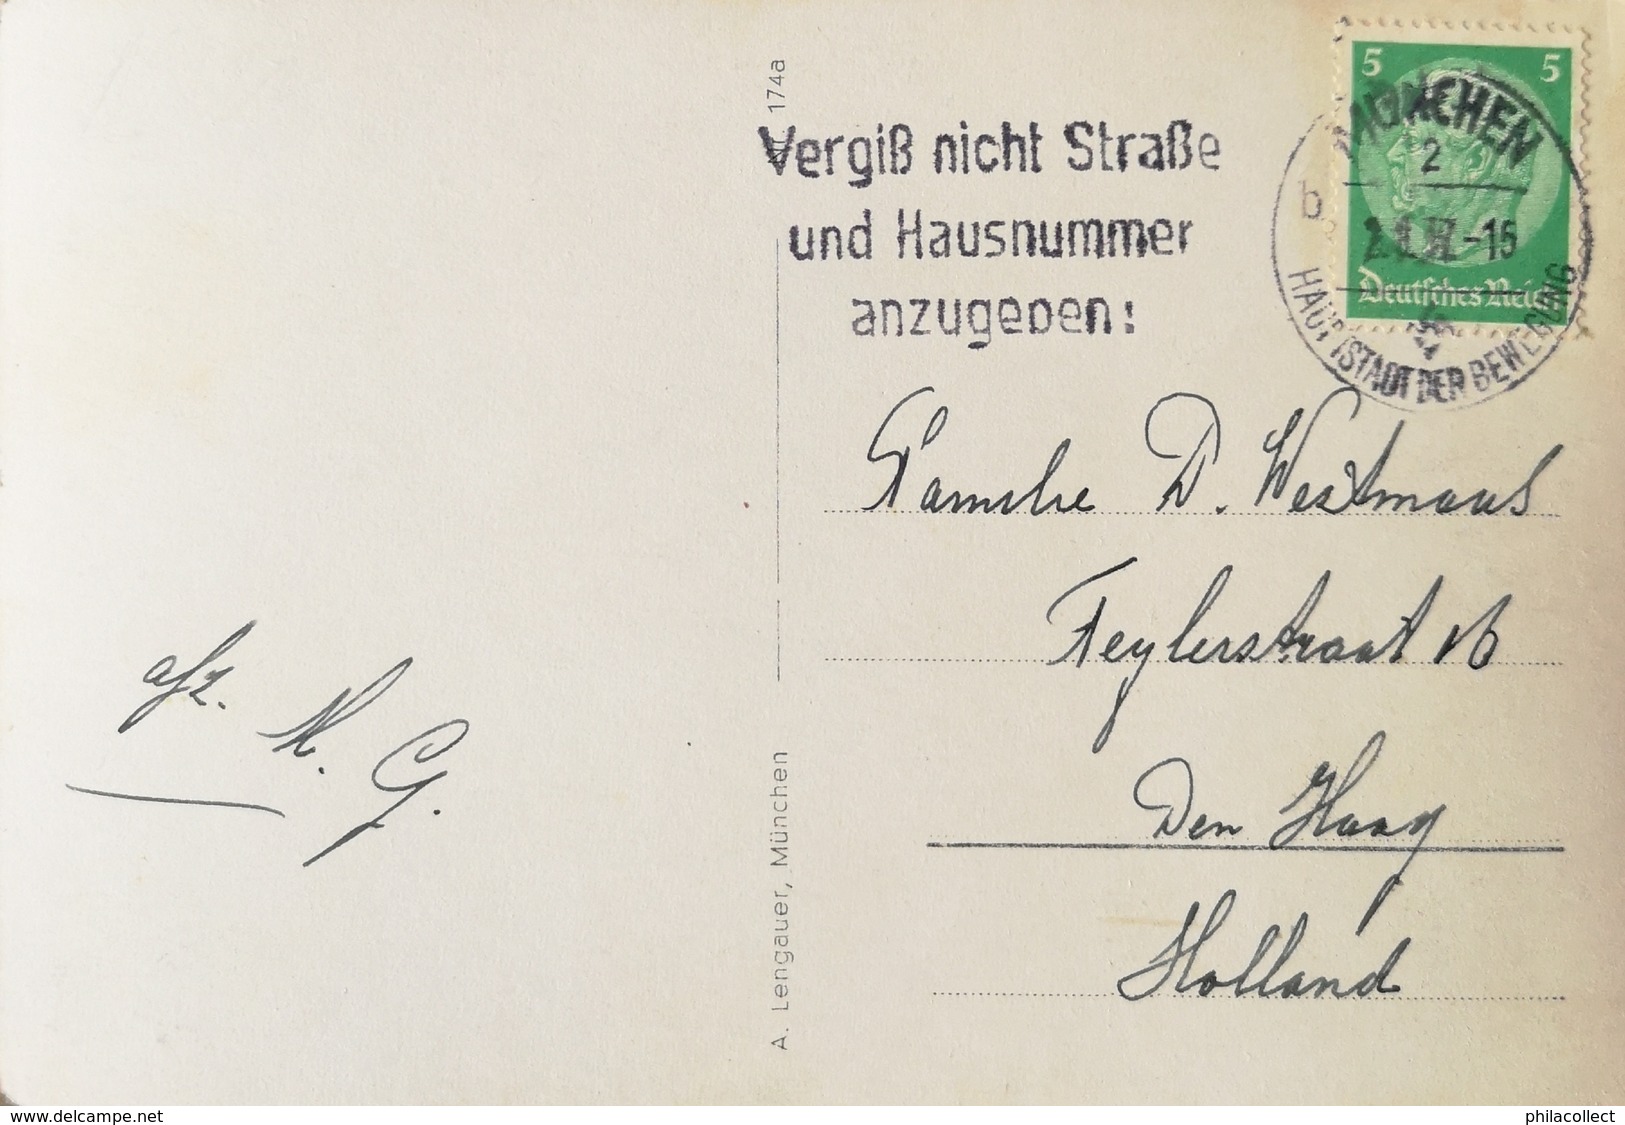 Nr. 174a
Vergiß nicht Straße
und Hausnummer
anzugeben!
5 5
MÜNCHEN
2
b
-15
HAUPTSTADT DER BEWEGUNG
Deutsches Reich
Familie D. Westmaas
Feylerstraat 16
Den Haag
Holland
afz. M. G.
A. Lengauer, München
www.delcampe.net
philacollect